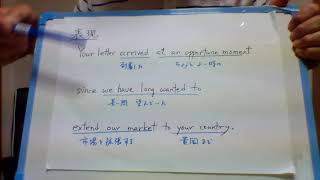 表現
Your letter arrived at an opportune moment
到着した ちょうど よい時に
since we have long wanted to
長い間 望んでいた
extend our market to your country.
市場を拡張する 貴国まで